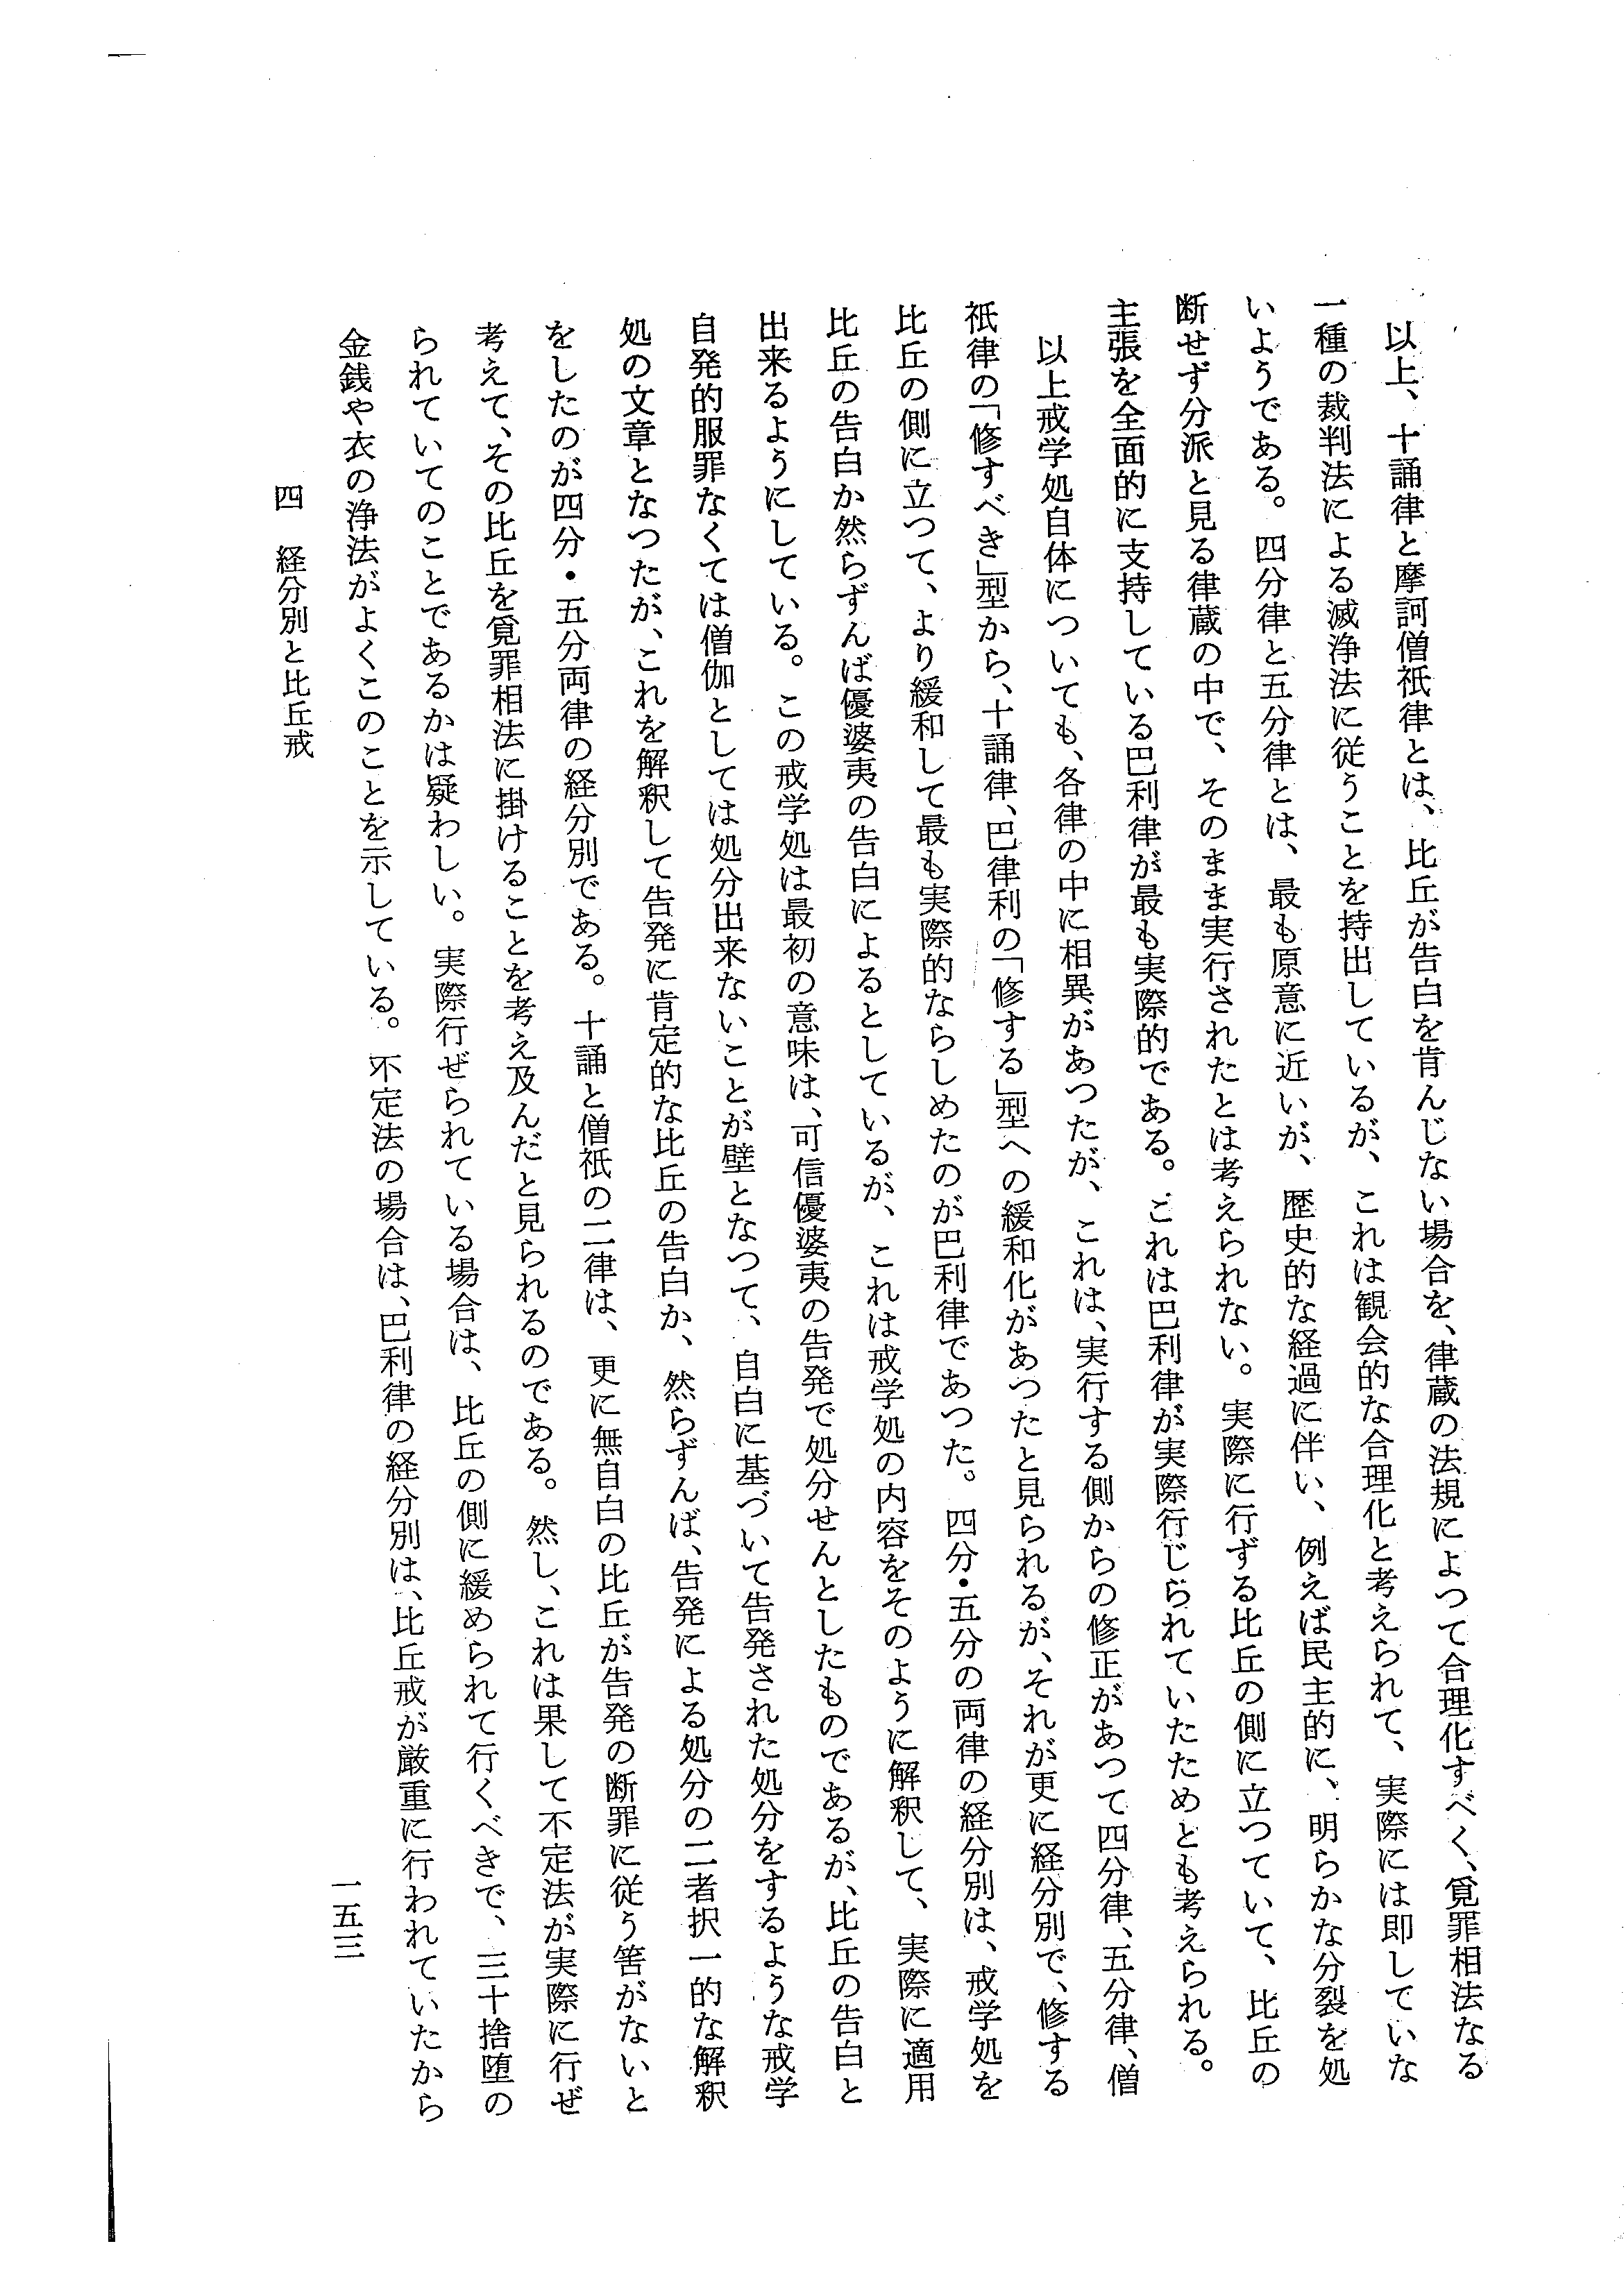 以上、十誦律と摩訶僧祇律とは、比丘が告白を肯んじない場合を、律蔵の法規によつて合理化すべく、覓罪相法なる
一種の裁判法による滅浄法に従うことを持出しているが、これは観会的な合理化と考えられて、実際には即していな
いようである。四分律と五分律とは、最も原意に近いが、歴史的な経過に伴い、例えば民主的に、明らかな分裂を処
断せず分派と見る律蔵の中で、そのまま実行されたとは考えられない。実際に行ずる比丘の側に立つていて、比丘の
主張を全面的に支持している巴利律が最も実際的である。これは巴利律が実際行じられていたためとも考えられる。
以上戒学処自体についても、各律の中に相異があつたが、これは、実行する側からの修正があつて四分律、五分律、僧
祇律の「修すべき」型から、十誦律、巴律利の「修する」型への緩和化があつたと見られるが、それが更に経分別で、修する
比丘の側に立つて、より緩和して最も実際的ならしめたのが巴利律であつた。四分・五分の両律の経分別は、戒学処を
比丘の告白か然らずんば優婆夷の告白によるとしているが、これは戒学処の内容をそのように解釈して、実際に適用
出来るようにしている。この戒学処は最初の意味は、可信優婆夷の告発で処分せんとしたものであるが、比丘の告白と
自発的服罪なくては僧伽としては処分出来ないことが壁となつて、自白に基づいて告発された処分をするような戒学
処の文章となつたが、これを解釈して告発に肯定的な比丘の告白か、然らずんば、告発による処分の二者択一的な解釈
をしたのが四分・五分両律の経分別である。十誦と僧祇の二律は、更に無自白の比丘が告発の断罪に従う筈がないと
考えて、その比丘を覓罪相法に掛けることを考え及んだと見られるのである。然し、これは果して不定法が実際に行ぜ
られていてのことであるかは疑わしい。実際行ぜられている場合は、比丘の側に緩められて行くべきで、三十捨堕の
金銭や衣の浄法がよくこのことを示している。不定法の場合は、巴利律の経分別は、比丘戒が厳重に行われていたから
四 経分別と比丘戒
一五三